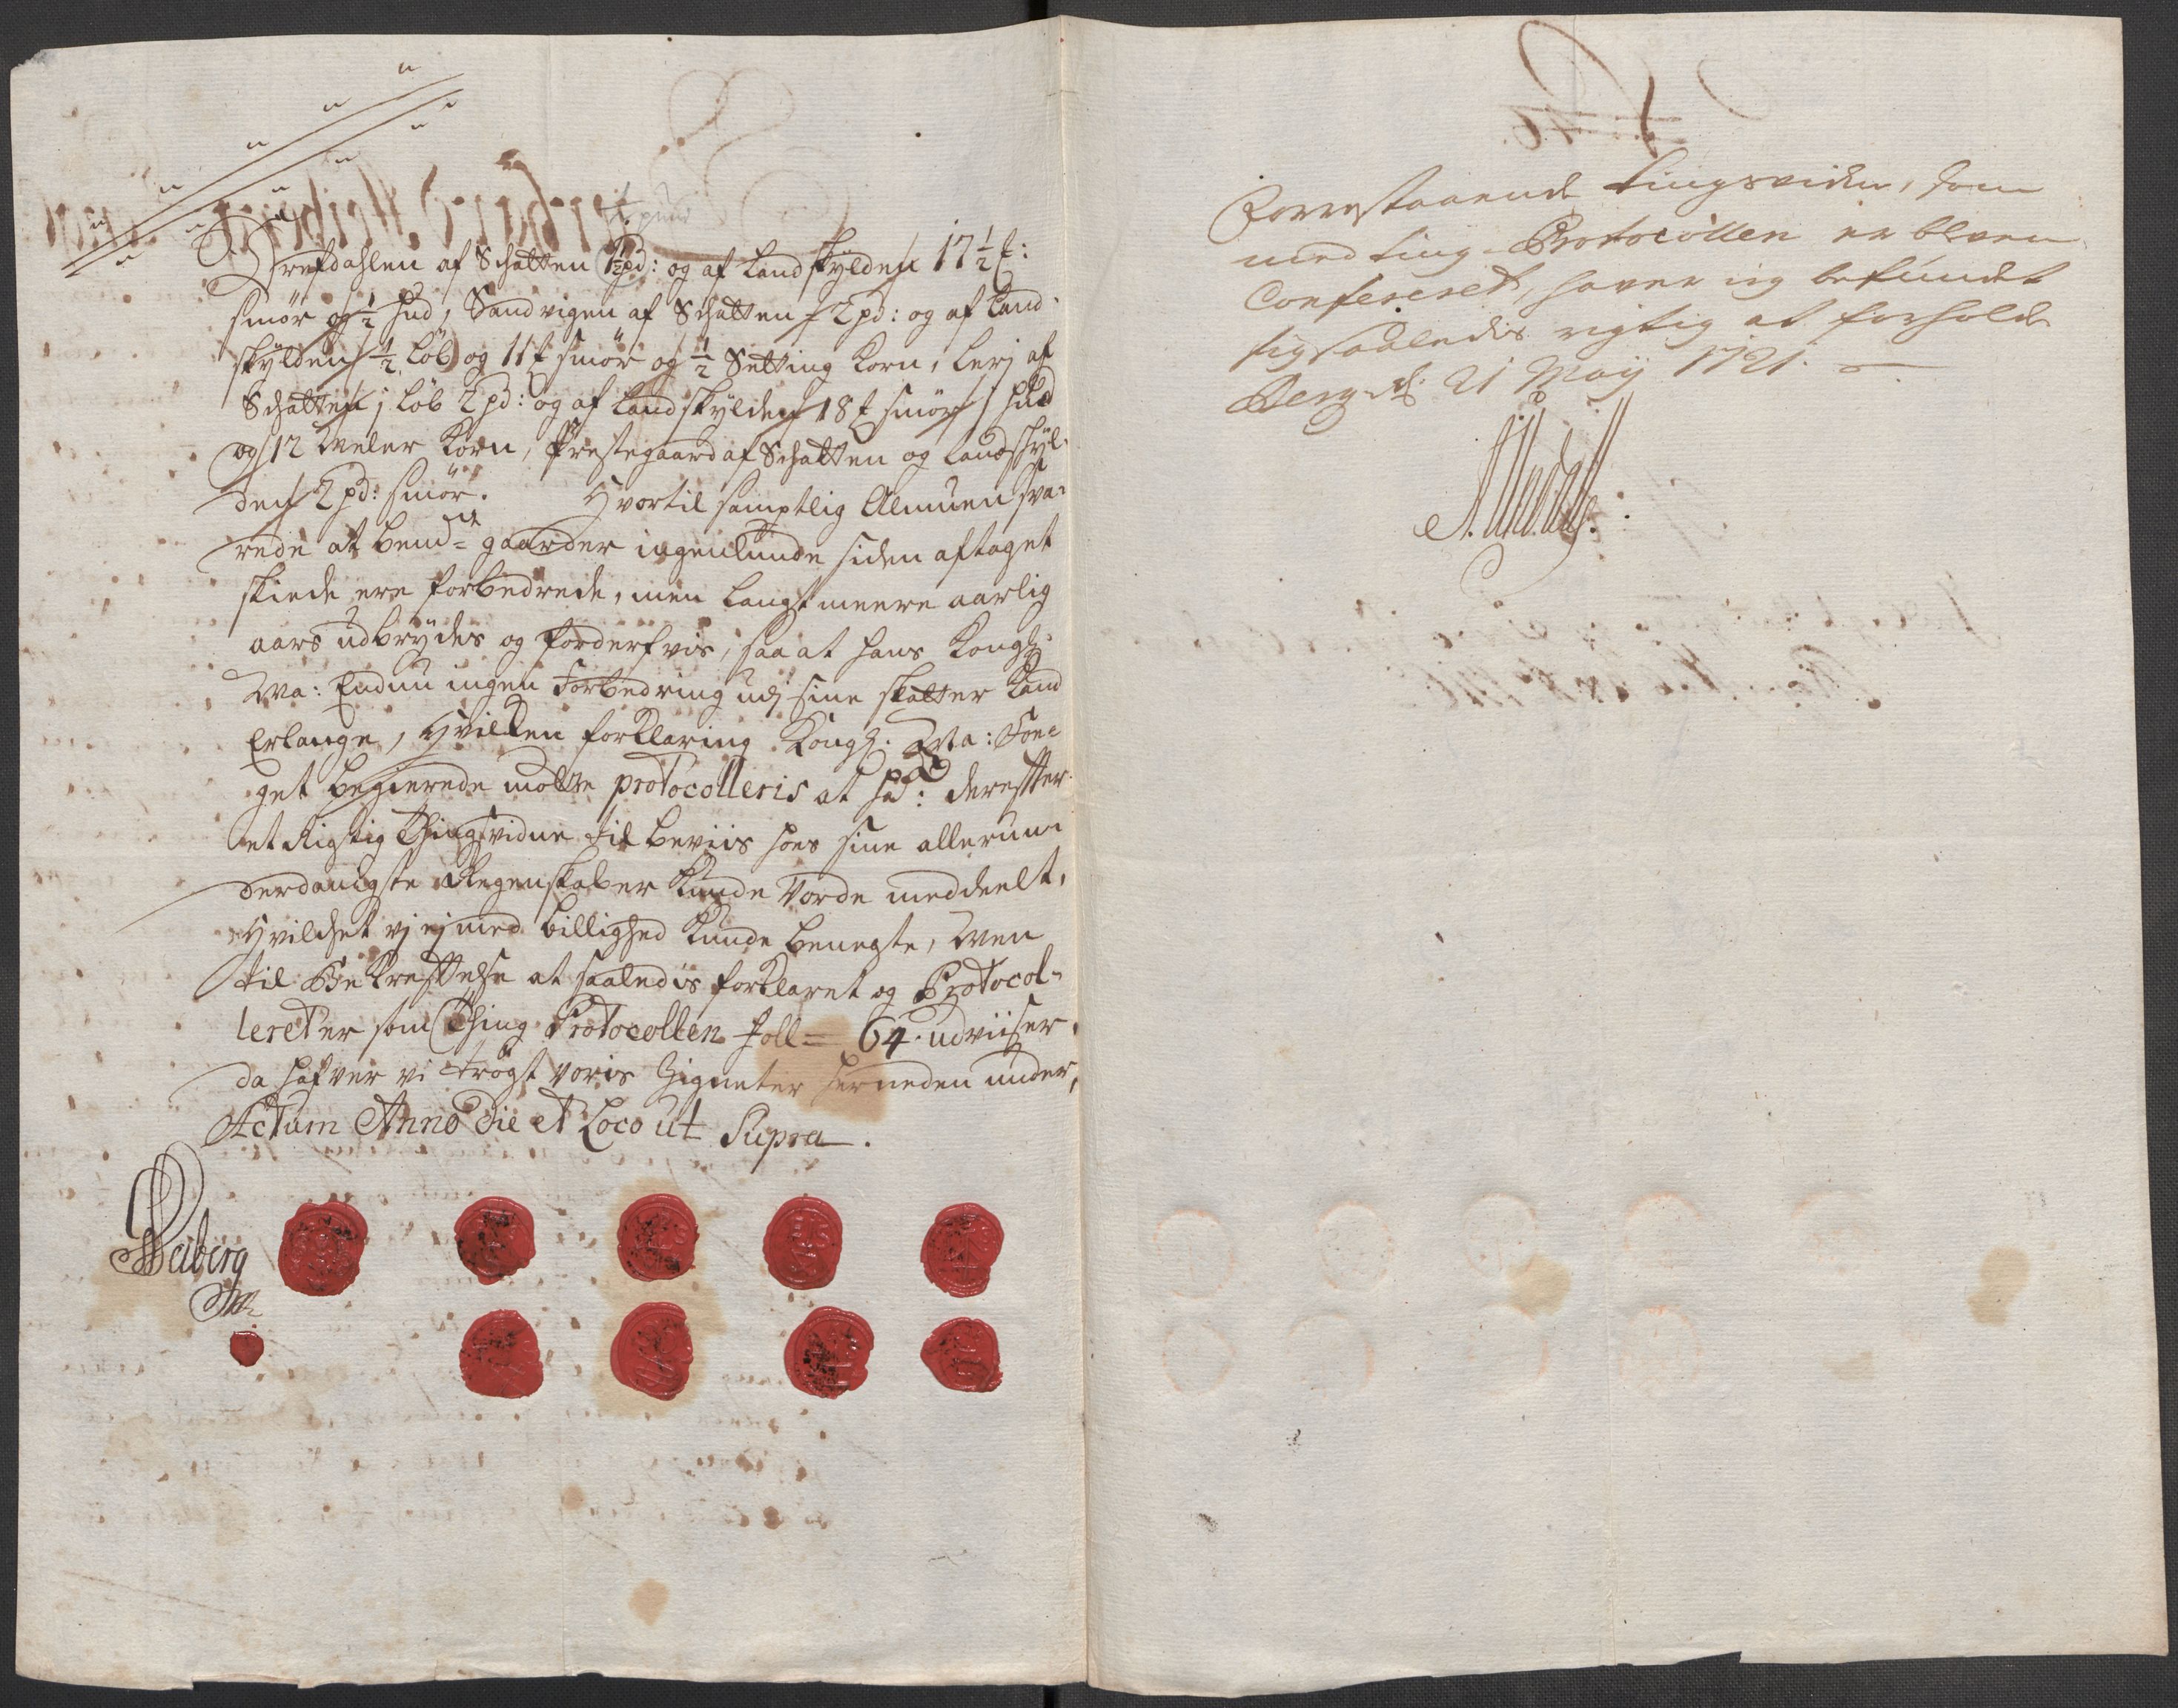 Trefdahlen af Schatten 1½ pd: og af Landskylden 17½ ℔:
smør og ½ hud, Sandvigen af Schatten - 2 pd: og af Land-
skylden ½ Løb og 11 ℔ smør og ½ Setting Korn, Lerj af
Schatten j Løb 2 pd: og af Landskylden 18 ℔ smør j hud
og 12 Meler Korn, Prestegaard af Schatten og Landskyl-
den 2 pd: smør. Hvortil samptlig Almuen sva-
rede at bemte gaarder ingenlunde siden aftaget
skiede ere forbedrede, men langst meere aarlig
aars udbrydes og forderfvis, saa at hans Kongl:
Ma: Endnu ingen Forbedring udj sine skatter kand
Erlange, Hvilken forklaring Kongl. Ma: Fou-
get begierede motte protocolleris at hd: derefter
et Rigtig Thingsvidne til beviis hoes sine allerun-
derdanigste Regenskaber kunde Vorde meddeelt,
Hvilchet vj ej med billighed kunde benegte, Men
til Bekreftelse at saaledis forklaret og Protocol-
leret er som Thing Protocollen Foll= 64. udviiser,
da hafver vi trögt voris Zigneter her neden under,
Actum Anno Die et Loco ut Supra.
Heiberg
Forrestaaende tingsvidne, som
med ting-Protocollen er bleven
Confereret, haver jeg befundet
sig saaledis rigtig at forholde
Berg. d. 21 Maij 1721.